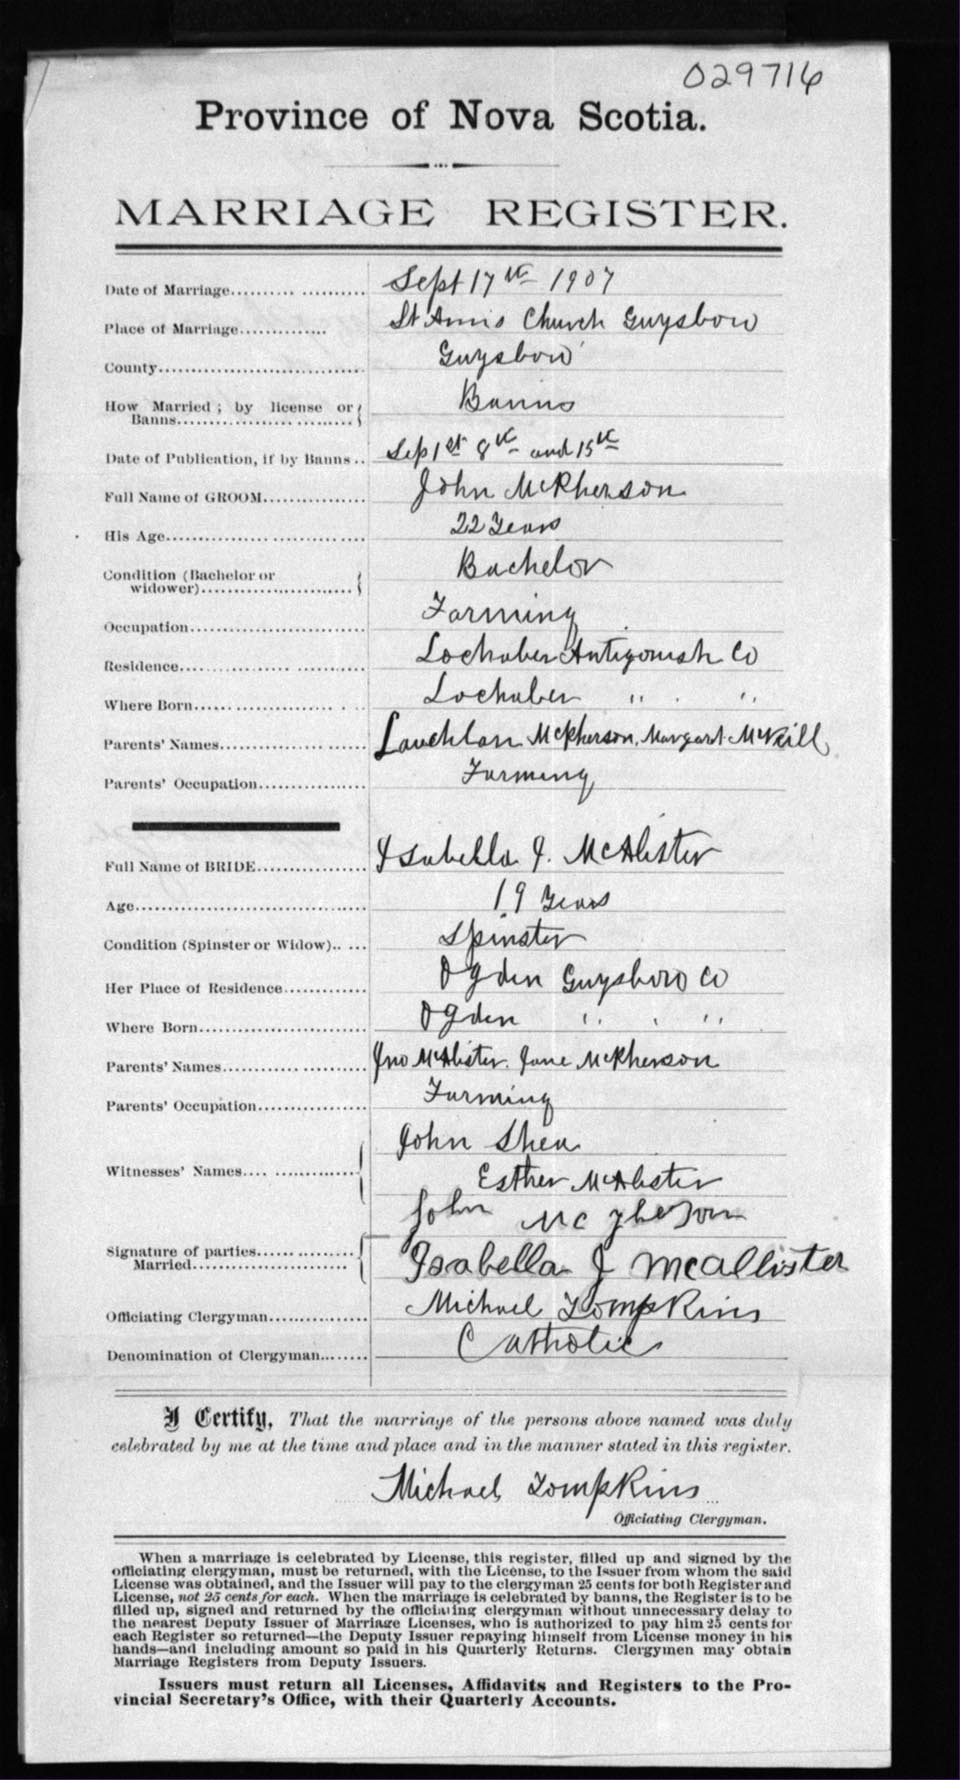 029716
Province of Nova Scotia.
MARRIAGE REGISTER.
Date of Marriage.......... Sept 17th 1907
Place of Marriage............. St Anns Church Guysboro
County............................. Guysboro
How Married ; by license or Banns.................... Banns
Date of Publication, if by Banns .. Sep 1st 8th and 15th
Full Name of GROOM............... John McPherson
His Age............................. 22 Years
Condition (Bachelor or widower)...................... Bachelor
Occupation......................... Farming
Residence........................... Lochaber Antigonish Co
Where Born......................... Lochaber " "
Parents' Names..................... Lauchlan McPherson, Margaret McNeill
Parents' Occupation................ Farming
Full Name of BRIDE................ Isabella J. McAlister
Age.................................. 19 Years
Condition (Spinster or Widow)..... Spinster
Her Place of Residence............ Ogden Guysboro Co
Where Born......................... Ogden " "
Parents' Names..................... Jno McAlister. Jane McPherson
Parents' Occupation................ Farming
Witnesses' Names.................. John Shea
Esther McAlister
John Mc pherson
Signature of parties Married...................... Isabella J mcallister
Officiating Clergyman............... Michael Tompkins
Denomination of Clergyman....... Catholic
I Certify, That the marriage of the persons above named was duly
celebrated by me at the time and place and in the manner stated in this register.
Michael Tompkins
Officiating Clergyman.
When a marriage is celebrated by License, this register, filled up and signed by the
officiating clergyman, must be returned, with the License, to the Issuer from whom the said
License was obtained, and the Issuer will pay to the clergyman 25 cents for both Register and
License, not 25 cents for each. When the marriage is celebrated by banns, the Register is to be
filled up, signed and returned by the officiating clergyman without unnecessary delay to
the nearest Deputy Issuer of Marriage Licenses, who is authorized to pay him 25 cents for
each Register so returned—the Deputy Issuer repaying himself from License money in his
hands—and including amount so paid in his Quarterly Returns. Clergymen may obtain
Marriage Registers from Deputy Issuers.
Issuers must return all Licenses, Affidavits and Registers to the Pro-
vincial Secretary's Office, with their Quarterly Accounts.